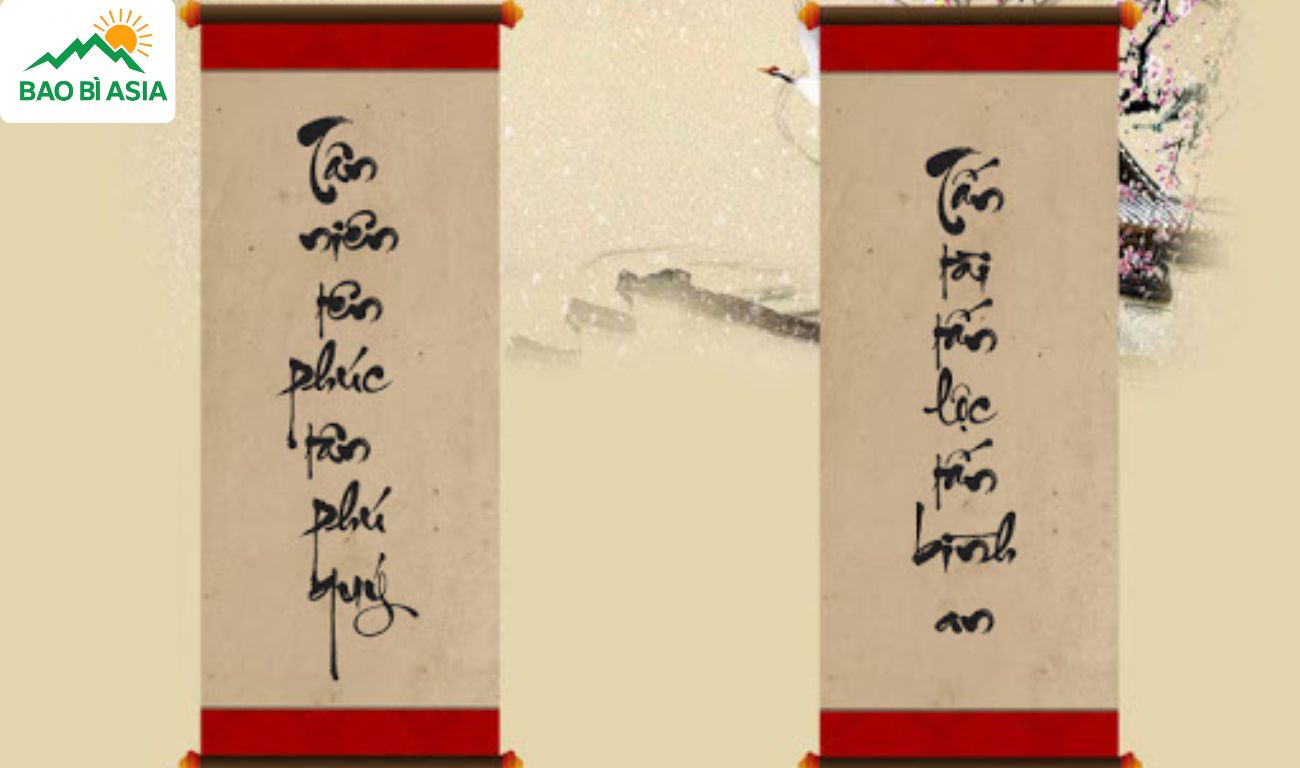 BAO BÌ ASIA
Tân
niên
tân
phúc
tân
phú
quý
Tấn
tài
tấn
lộc
tấn
bình
an